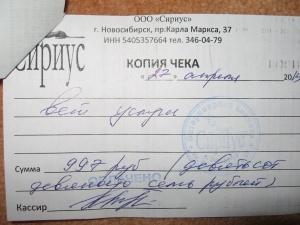 ООО «Сириус»
г. Новосибирск, пр.Карла Маркса, 37
ИНН 5405357664 тел. 346-04-79
Сириус
КОПИЯ ЧЕКА
"27" апреля 20
вет услуги
Сириус
Сумма 997 руб (девятьсот
девяносто семь рублей)
Кассир